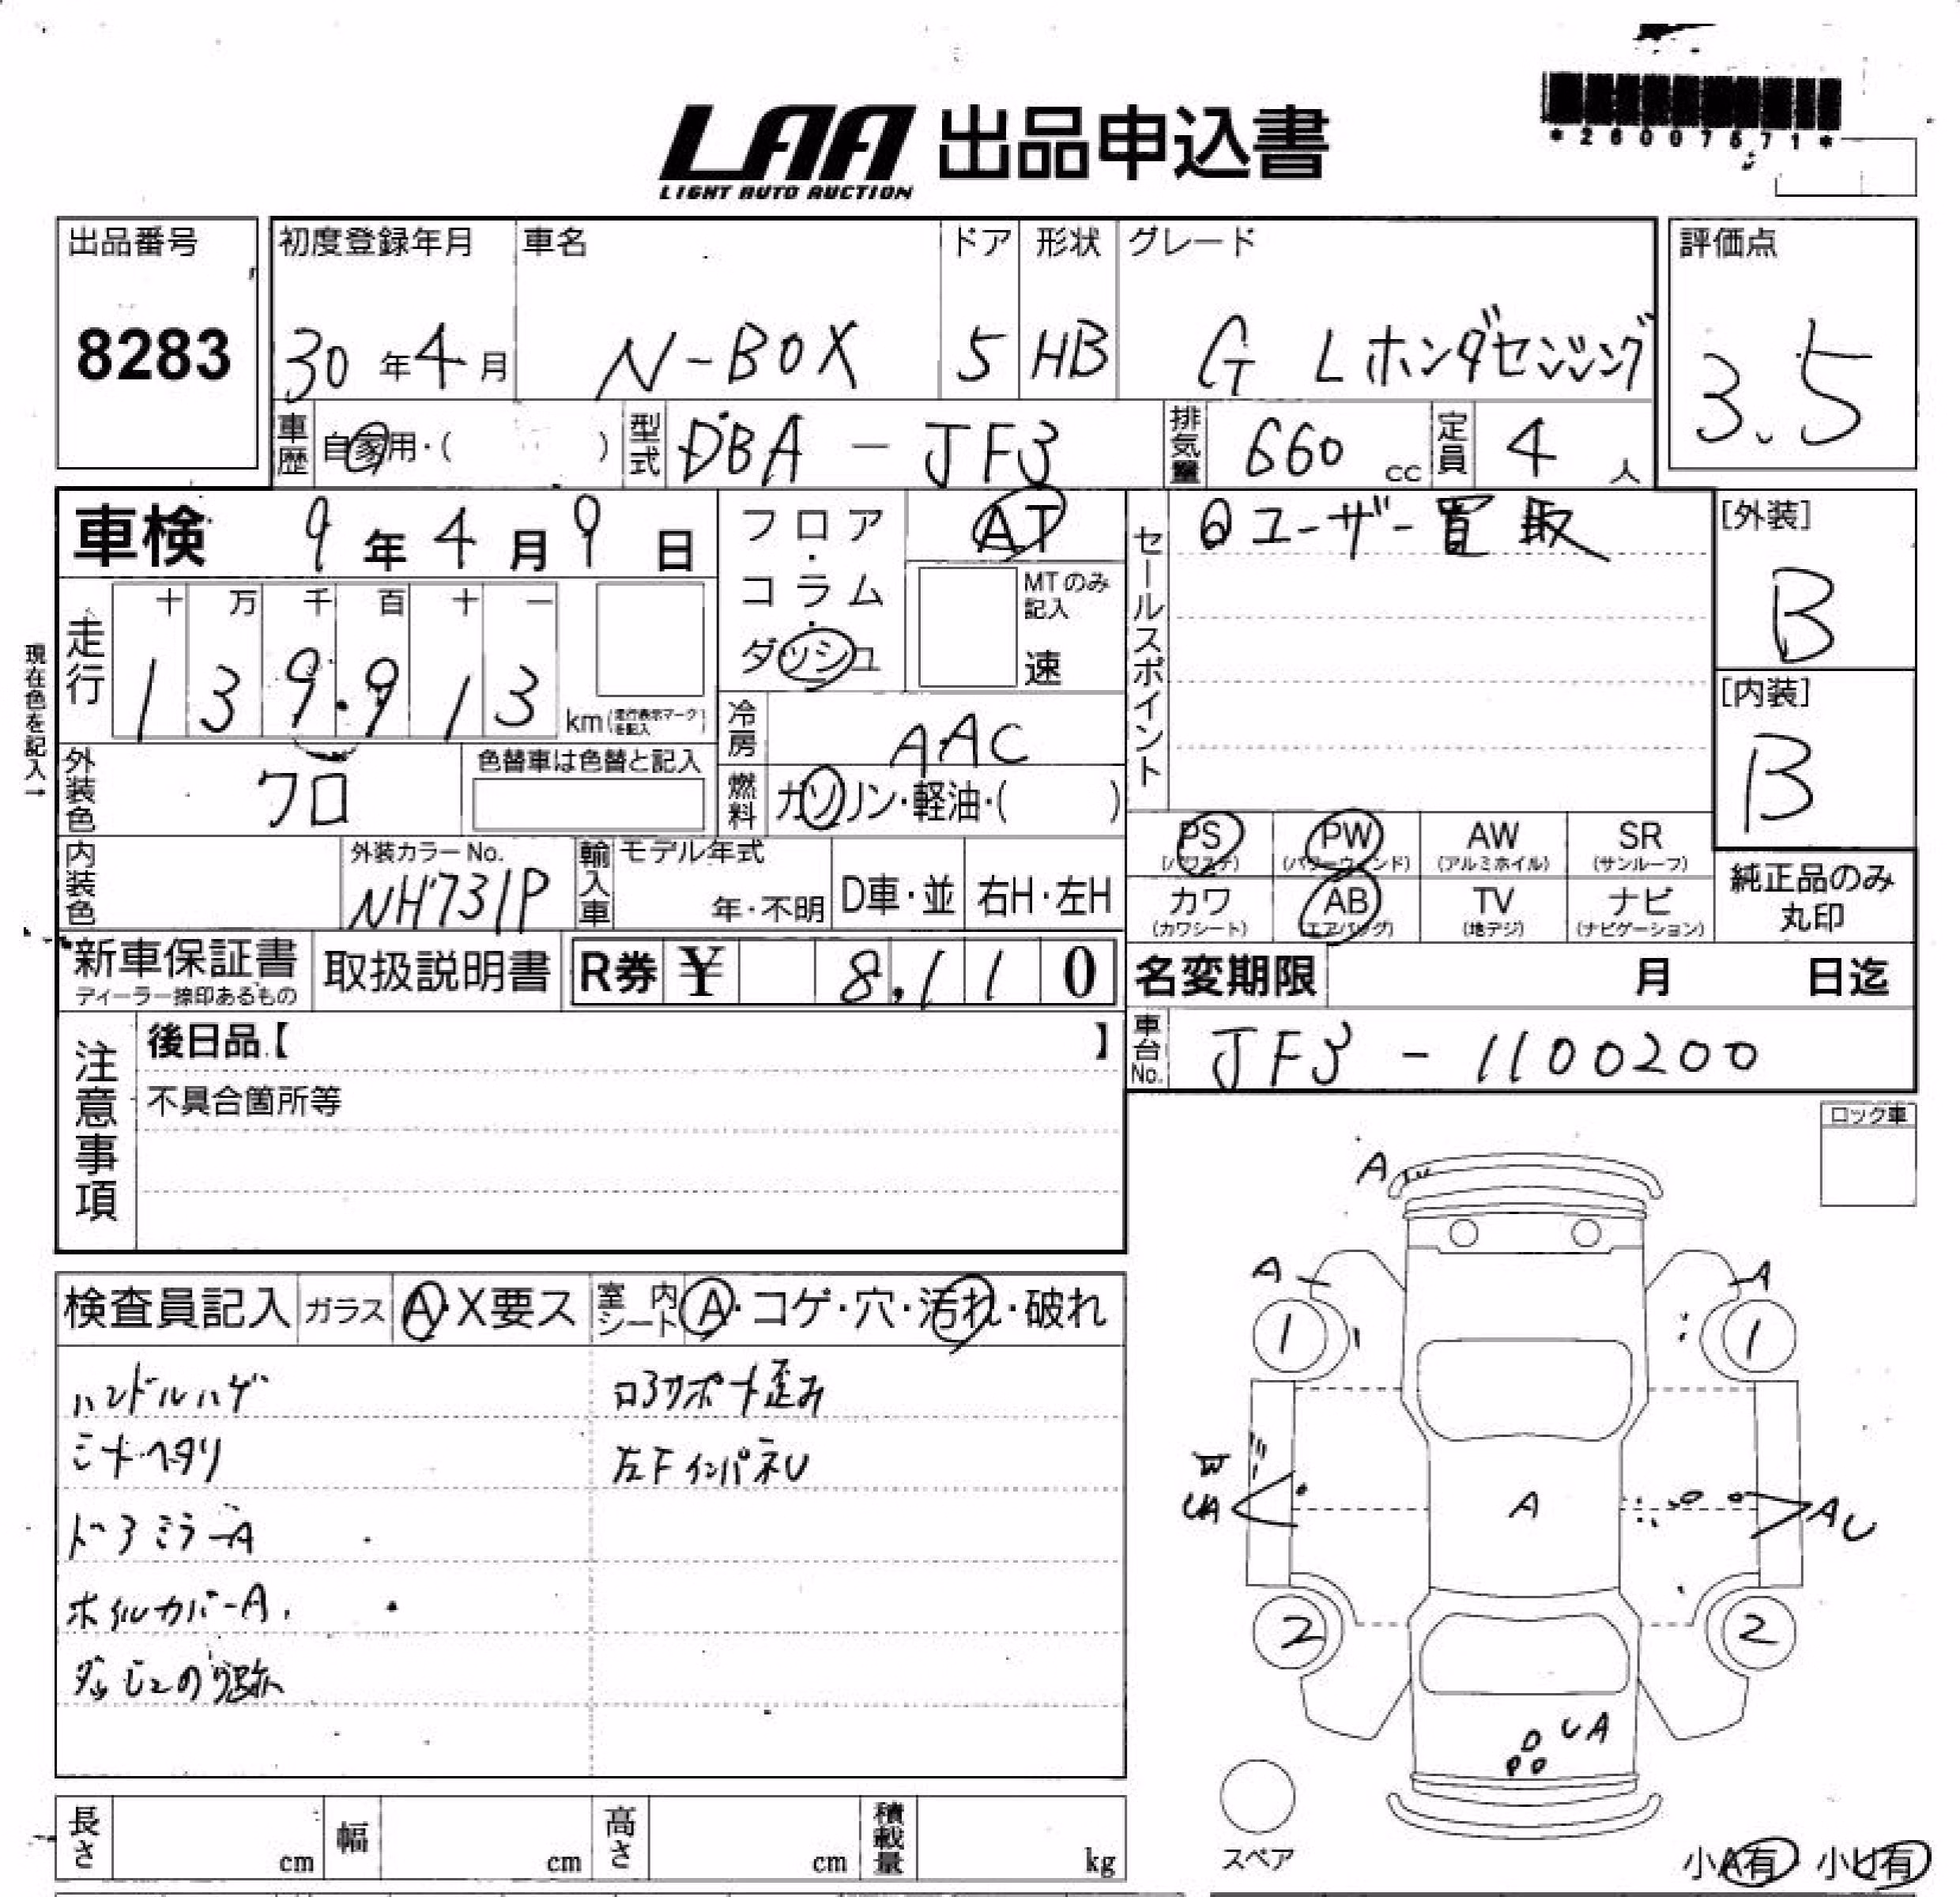 LAA 出品申込書
LIGHT AUTO AUCTION
*26007571*
出品番号
8283
初度登録年月
30年4月
車名
N-BOX
ドア
5
形状
HB
グレード
G Lホンダセンシング
評価点
3.5
車歴
自家用・( )
型式
DBA-JF3
排気量
660cc
定員
4人
車検 9年4月9日
現在色を記入→
走行
十 万 千 百 十 一
139.913 km(走行表示マークを記入)
フロア・コラム・ダッシュ
AT
MTのみ記入
速
冷房
AAC
燃料
ガソリン・軽油・( )
外装色
クロ
色替車は色替と記入
内装色
外装カラーNo.
NH731P
輸入車
モデル年式
年・不明
D車・並
右H・左H
セールスポイント
ユーザー買取
[外装]
B
[内装]
B
PS (パワステ)
PW (パワーウィンド)
AW (アルミホイル)
SR (サンルーフ)
カワ (カワシート)
AB (エアバッグ)
TV (地デジ)
ナビ (ナビゲーション)
純正品のみ丸印
新車保証書
ディーラー捺印あるもの
取扱説明書
R券 ¥ 8,110
名変期限 月 日迄
車台No.
JF3-1100200
注意事項
後日品【 】
不具合箇所等
ロック車
検査員記入
ガラス A・X要ス
室内シート A・コゲ・穴・汚れ・破れ
ハンドルハゲ
シートヘタリ
ドアミラーA
ホイルカバーA
ダッシュのり跡
コアサポート歪み
左FインパネU
A
A
A
1
1
W
UA
A
AU
2
2
UA
スペア
小A有・小U有
長さ cm
幅 cm
高さ cm
積載量 kg